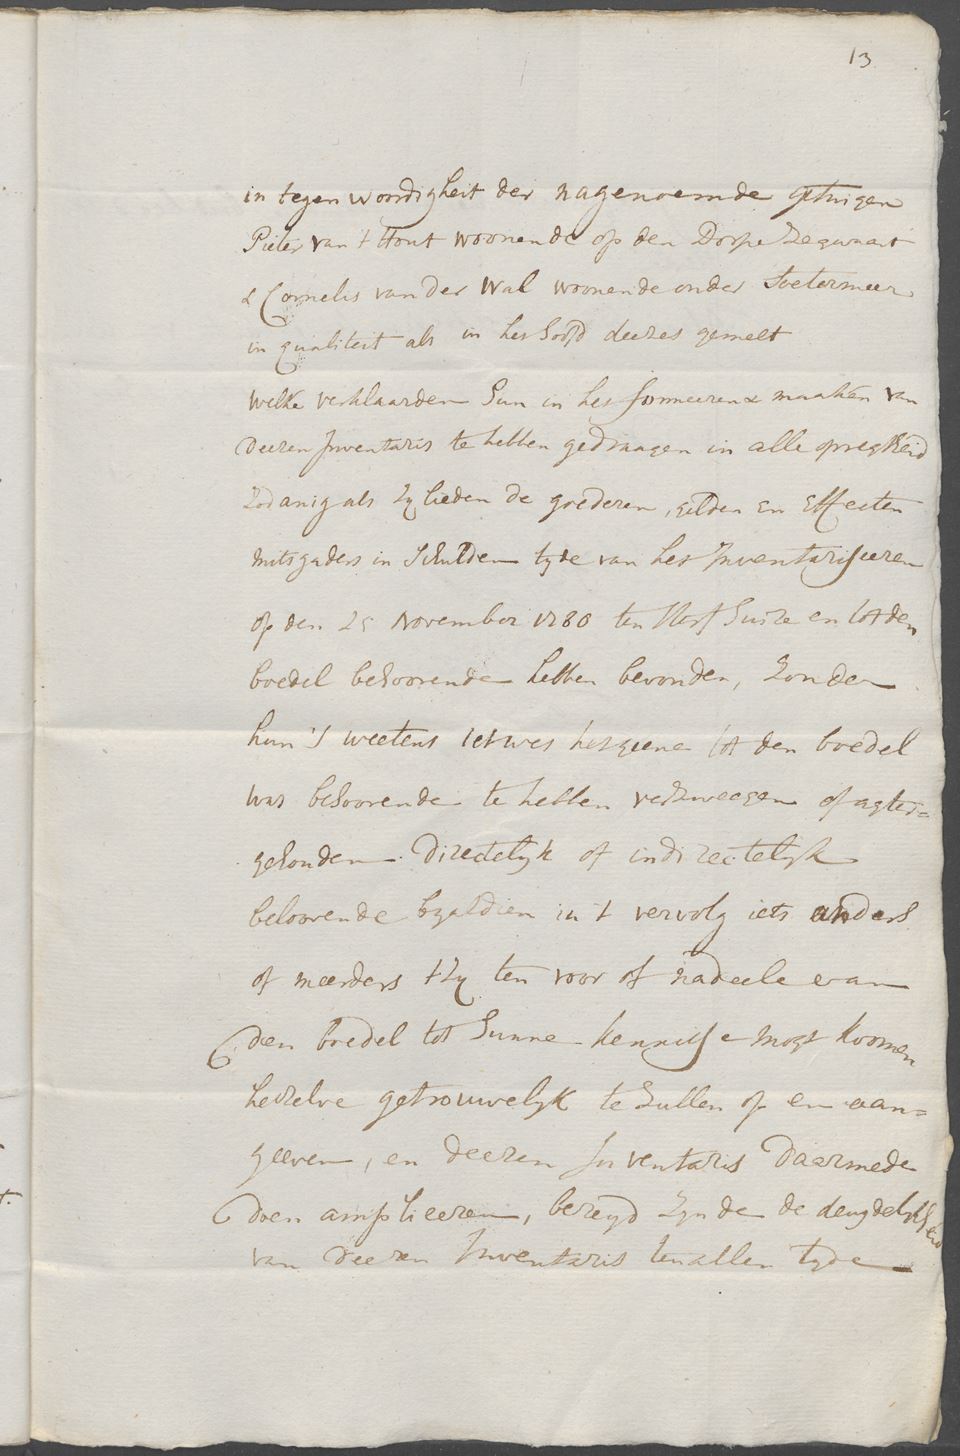 13
in tegenwoordigheit der nagenoemde getuigen
Pieter van 't Hout woonende op den Dorpe Zegwaart
& Cornelis van der Wal woonende onder Soetermeer
in qualiteit als in het hoofd deezes gemelt
welke verklaarden hun in het formeeren & maaken van
deezen Inventaris te hebben gedraagen in alle opregtheid
zodanig als zy lieden de goederen, gelden en Effecten
mitsgaders in Schulden tyde van het Inventariseeren
op den 25 November 1780 ten sterfhuize en tot den
boedel behoorende hebben bevonden, zonder
hun 's weetens ietwes hetgeene tot den boedel
was behoorende te hebben verzweegen of agter=
gehouden directelyk of indirectelyk
beloovende byaldien in 't vervolg iets anders
of meerders 't zy ten voor of nadeele van
den boedel tot hunne kennisse mogt koomen
hetzelve getrouwelyk te zullen op en aan=
geeven, en deezen Inventaris daarmede
doen amplieeren, bereyd zynde de deugdelykheid
van deezen Inventaris ten allen tyde